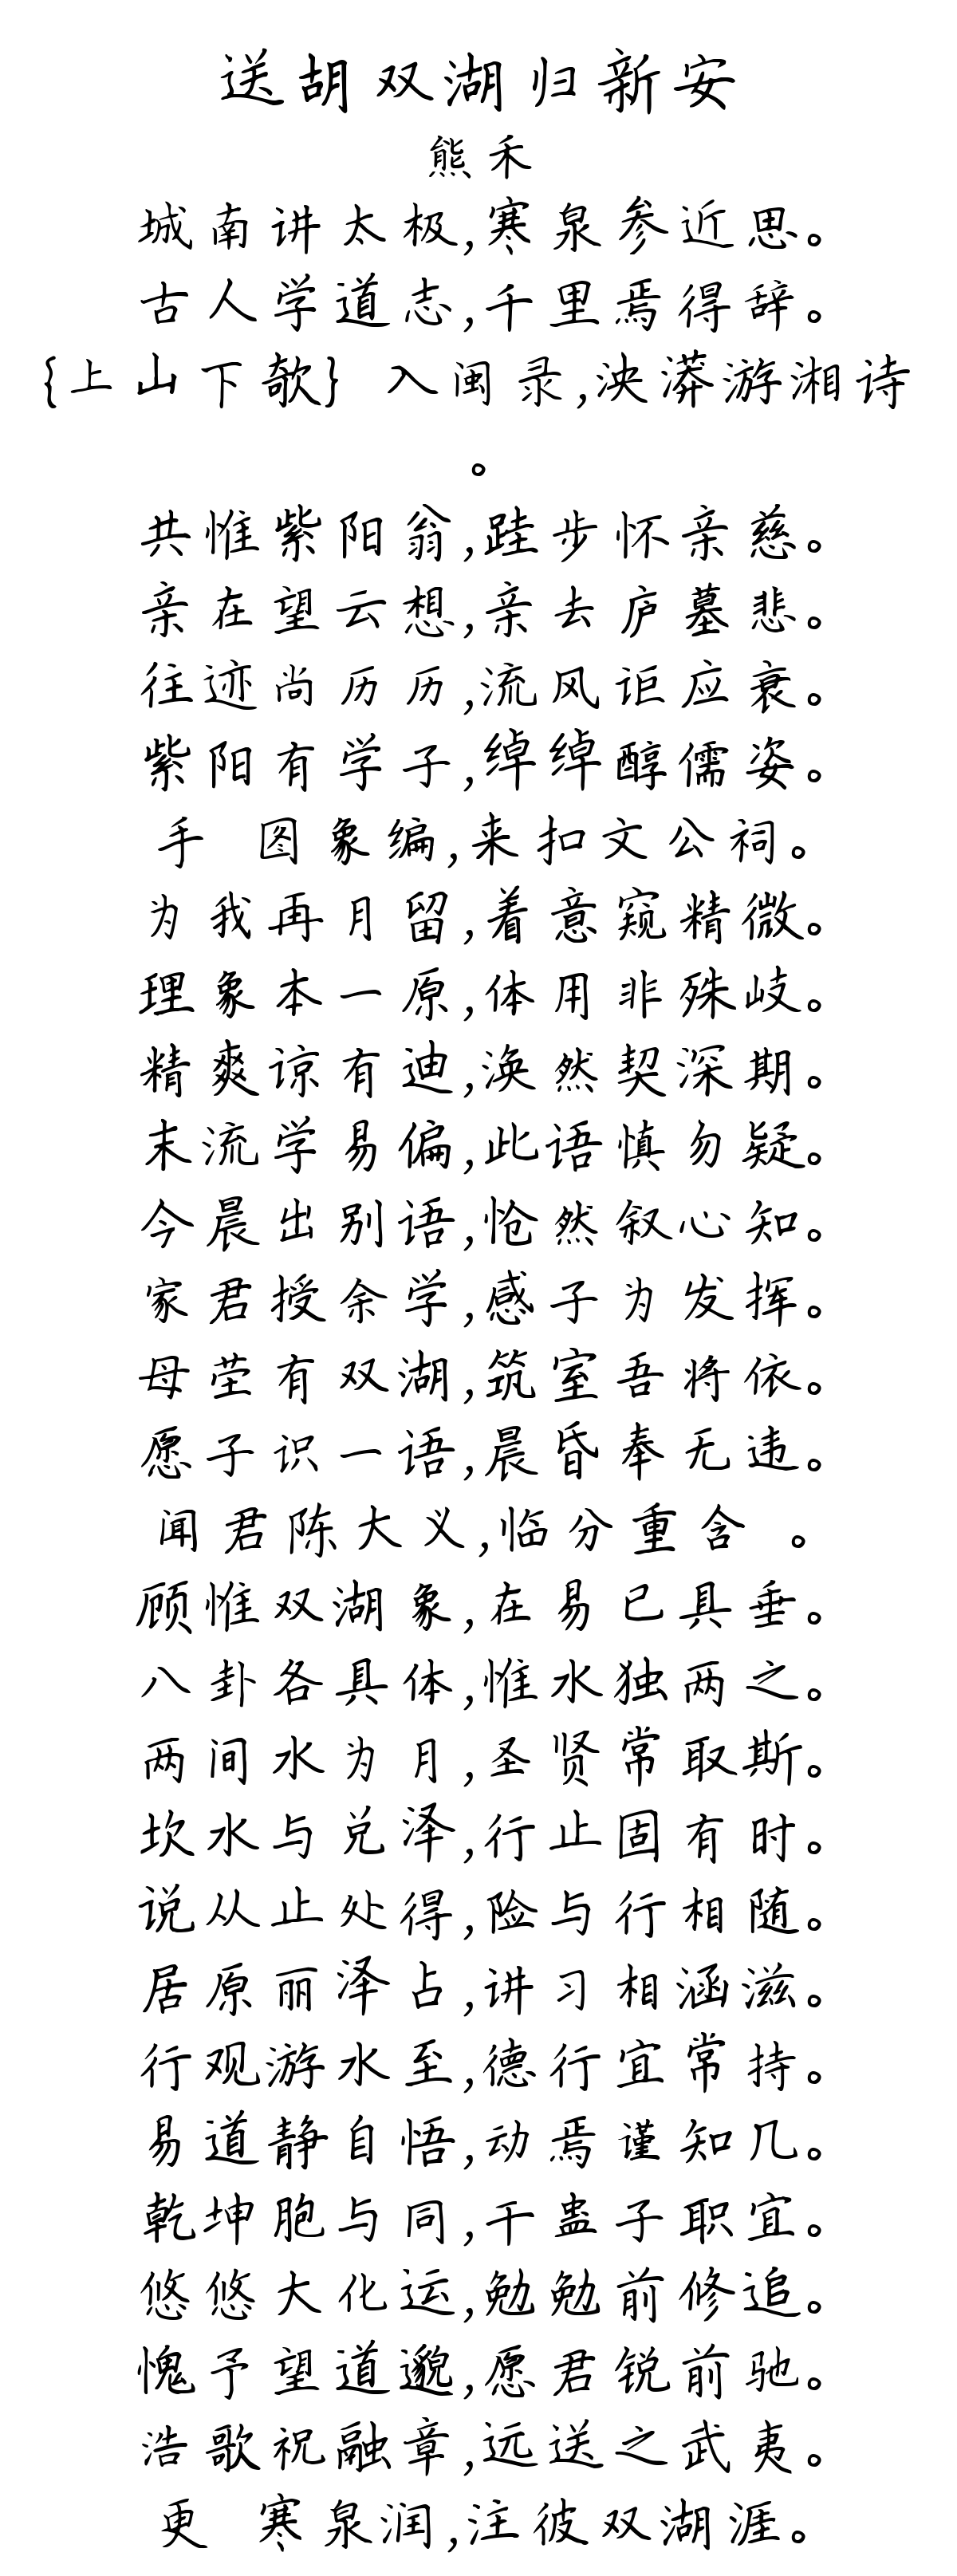 送胡双湖归新安
熊禾
城南讲太极,寒泉参近思。
古人学道志,千里焉得辞。
{上山下欹} 入闽录,泱漭游湘诗
。
共惟紫阳翁,跬步怀亲慈。
亲在望云想,亲去庐墓悲。
往迹尚历历,流风讵应衰。
紫阳有学子,绰绰醇儒姿。
手 图象编,来扣文公祠。
为我再月留,着意窥精微。
理象本一原,体用非殊岐。
精爽谅有迪,涣然契深期。
末流学易偏,此语慎勿疑。
今晨出别语,怆然叙心知。
家君授余学,感子为发挥。
母茔有双湖,筑室吾将依。
愿子识一语,晨昏奉无违。
闻君陈大义,临分重含 。
顾惟双湖象,在易已具垂。
八卦各具体,惟水独两之。
两间水为月,圣贤常取斯。
坎水与兑泽,行止固有时。
说从止处得,险与行相随。
居原丽泽占,讲习相涵滋。
行观游水至,德行宜常持。
易道静自悟,动焉谨知几。
乾坤胞与同,干蛊子职宜。
悠悠大化运,勉勉前修追。
愧予望道邈,愿君锐前驰。
浩歌祝融章,远送之武夷。
更 寒泉润,注彼双湖涯。